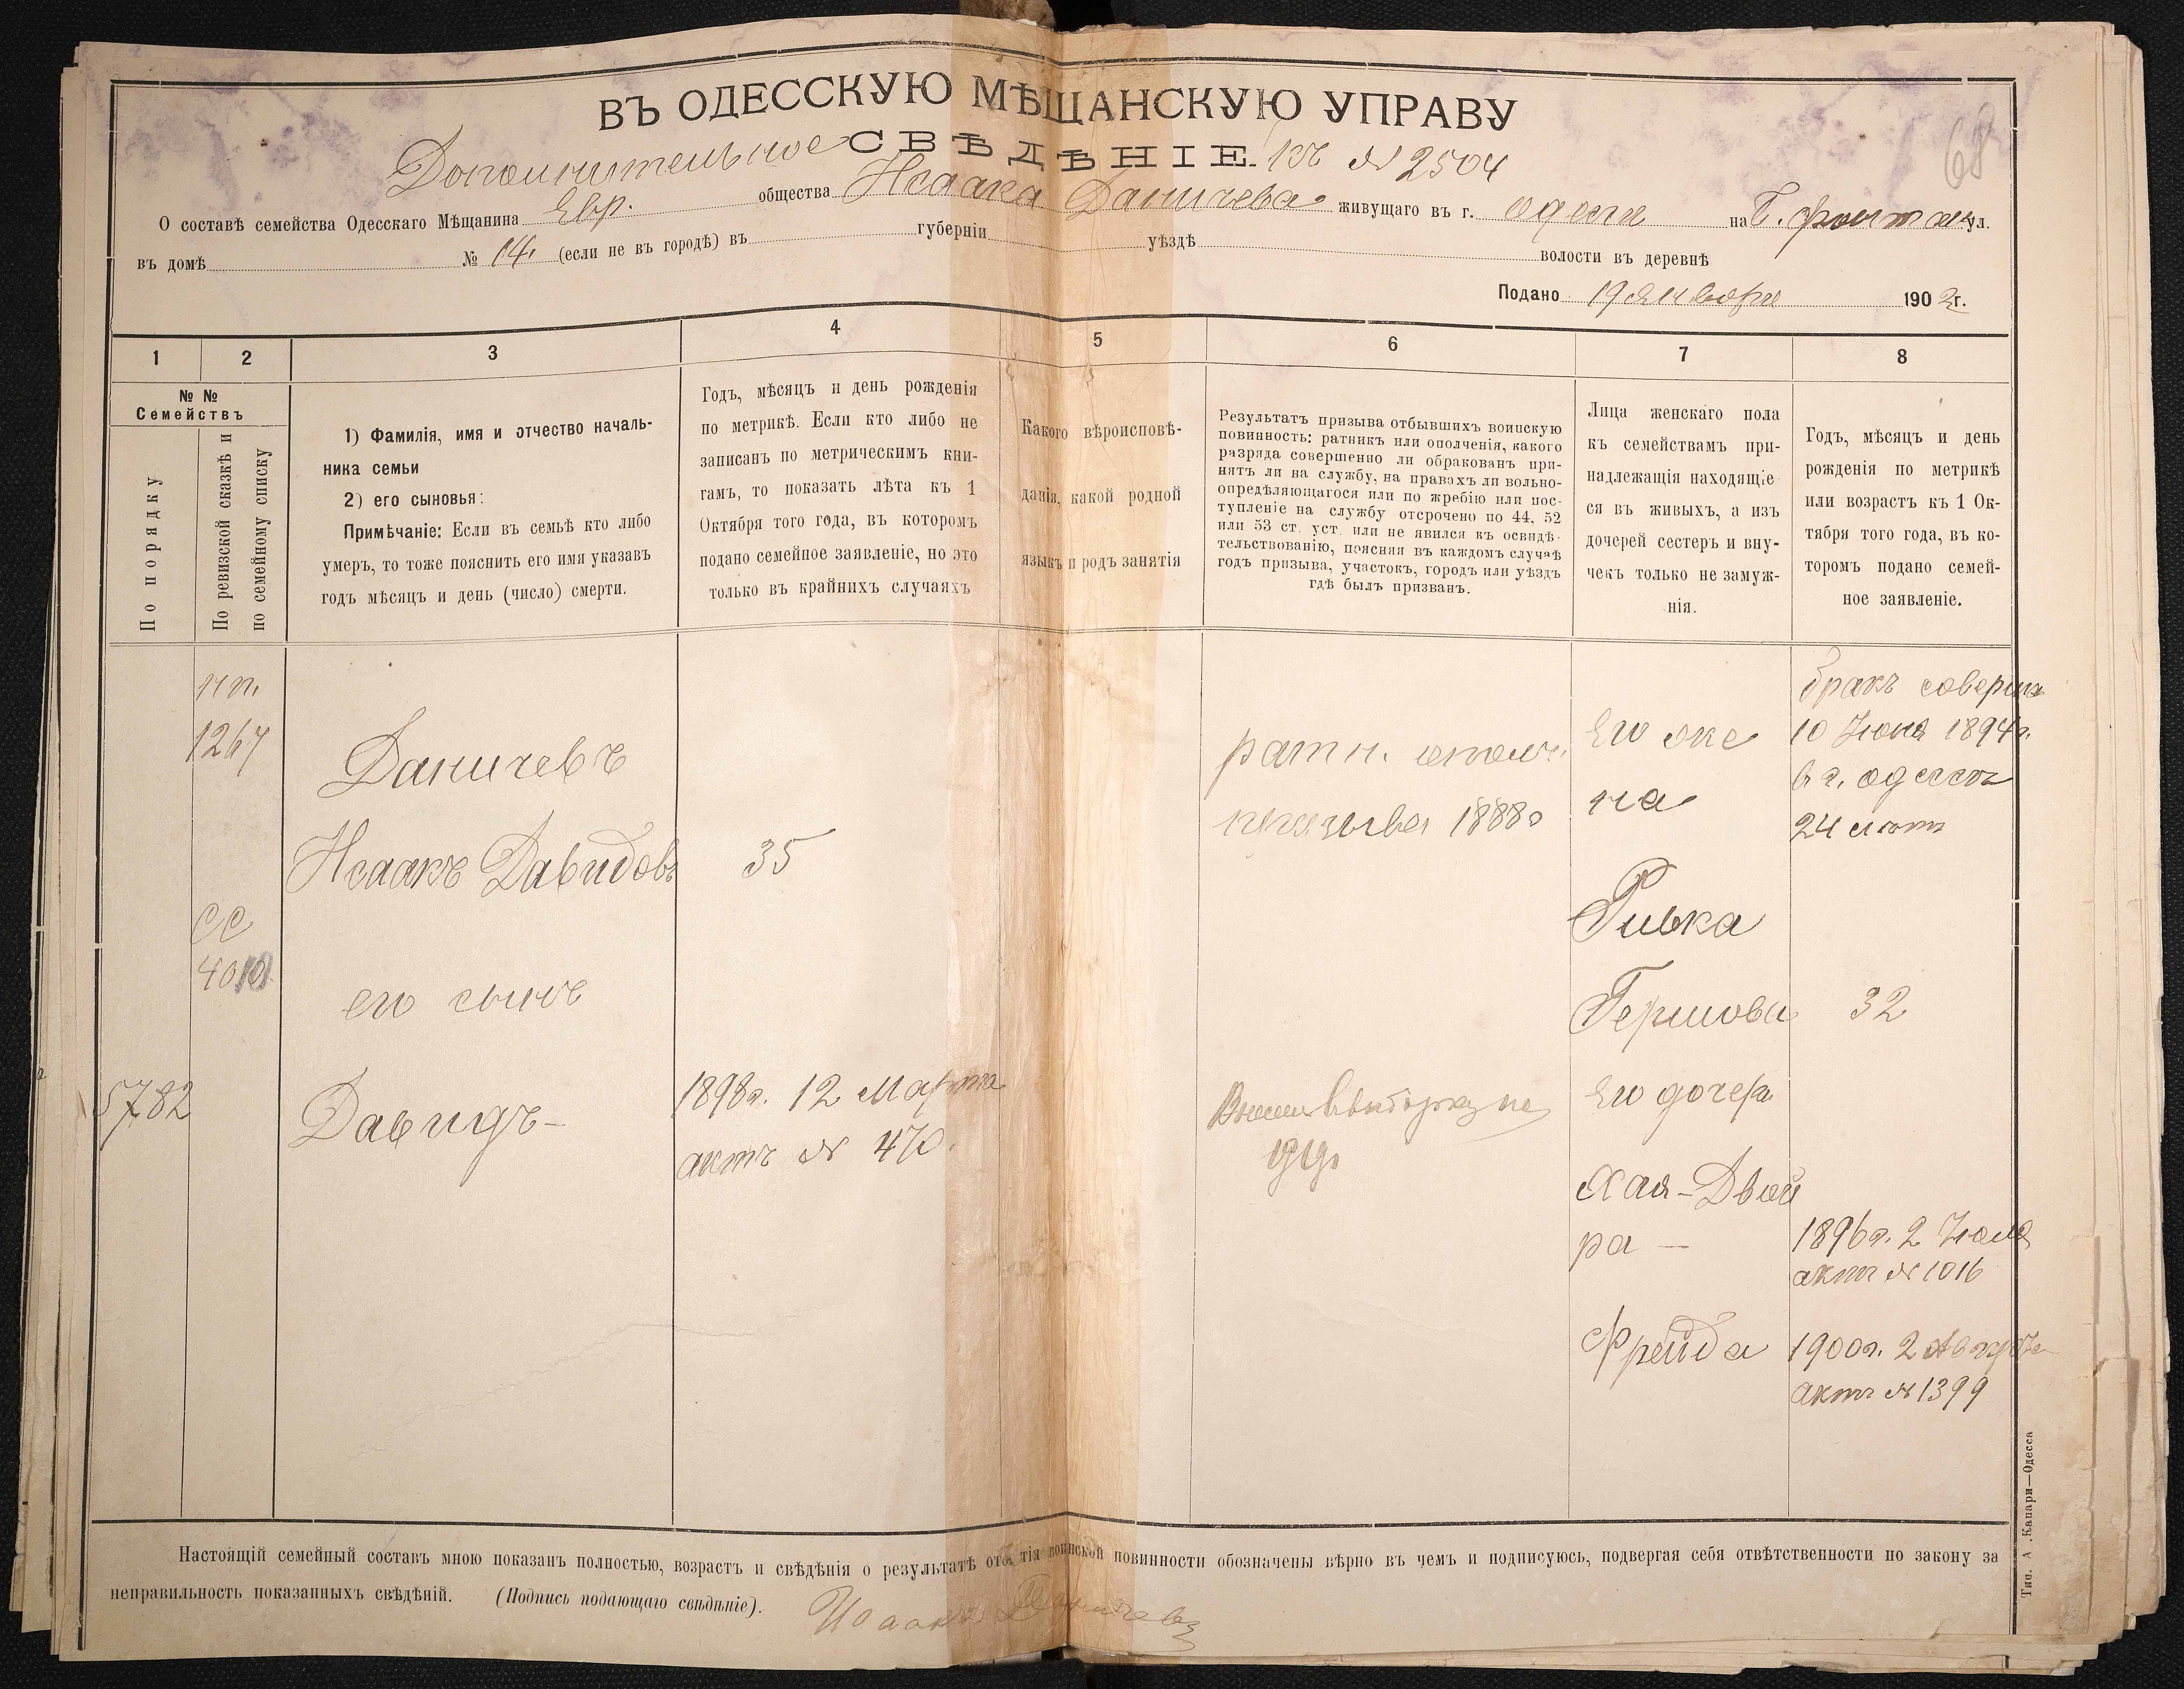 ВЪ ОДЕССКУЮ МѢЩАНСКУЮ УПРАВУ
68
Дополнительное СВѢДѢНІЕ. къ № 2504
О составѣ семейства Одесскаго Мѣщанина Евр. общества Исаака Даничева живущаго въ г. Одессѣ на Б. Фонтан ул.
въ домѣ № 14 (если не въ городѣ) въ губерніи уѣздѣ волости въ деревнѣ
Подано 19 Января 1902 г.
1 2 3 4 5 6 7 8
№ № Семействъ
По порядку
По ревизской сказкѣ и
по семейному списку
1) Фамилія, имя и отчество началь-
ника семьи
2) его сыновья:
Примѣчаніе: Если въ семьѣ кто либо
умеръ, то тоже пояснить его имя указавъ
годъ мѣсяцъ и день (число) смерти.
Годъ, мѣсяцъ и день рожденія
по метрикѣ. Если кто либо не
записанъ по метрическимъ кни-
гамъ, то показать лѣта къ 1
Октября того года, въ которомъ
подано семейное заявленіе, но это
только въ крайнихъ случаяхъ
Какого вѣроисповѣ-
данія, какой родной
языкъ и родъ занятія
Результатъ призыва отбывшихъ воинскую
повинность: ратникъ или ополченія, какого
разряда совершенно ли обракованъ при-
нятъ ли на службу, на правахъ ли вольно-
опредѣляющагося или по жребію или пос-
тупленіе на службу отсрочено по 44, 52
или 53 ст. уст. или не явился къ освидѣ-
тельствованію, поясняя въ каждомъ случаѣ
годъ призыва, участокъ, городъ или уѣздъ
гдѣ былъ призванъ.
Лица женскаго пола
къ семействамъ при-
надлежащія находящіе-
ся въ живыхъ, а изъ
дочерей сестеръ и вну-
чекъ только не замуж-
нія.
Годъ, мѣсяцъ и день
рожденія по метрикѣ
или возрастъ къ 1 Ок-
тября того года, въ ко-
торомъ подано семей-
ное заявленіе.
нп.
1267
Даничевъ
Исаакъ Давидовъ
35
ратн. ополч.
призыва 1888г
Его же
на
Ривка
Гершова
бракъ соверш
10 Іюня 1894г.
в г. Одессѣ
24 лѣтъ
32
СС
4010
его сынъ
5782
Давидъ-
1898г. 12 Марта
актъ № 470.
Его дочер
Хая-Двой
ра -
1896г. 2 Іюля
актъ № 1016
Фрейда
1900г. 2 Августа
актъ № 1399
Настоящій семейный составъ мною показанъ полностью, возрастъ и свѣдѣнія о результатѣ отбытія воинской повинности обозначены вѣрно въ чемъ и подписуюсь, подвергая себя отвѣтственности по закону за
неправильность показанныхъ свѣдѣній. (Подпись подающаго свѣдѣніе). Исаакъ Даничевъ
Тип. А. Капари—Одесса